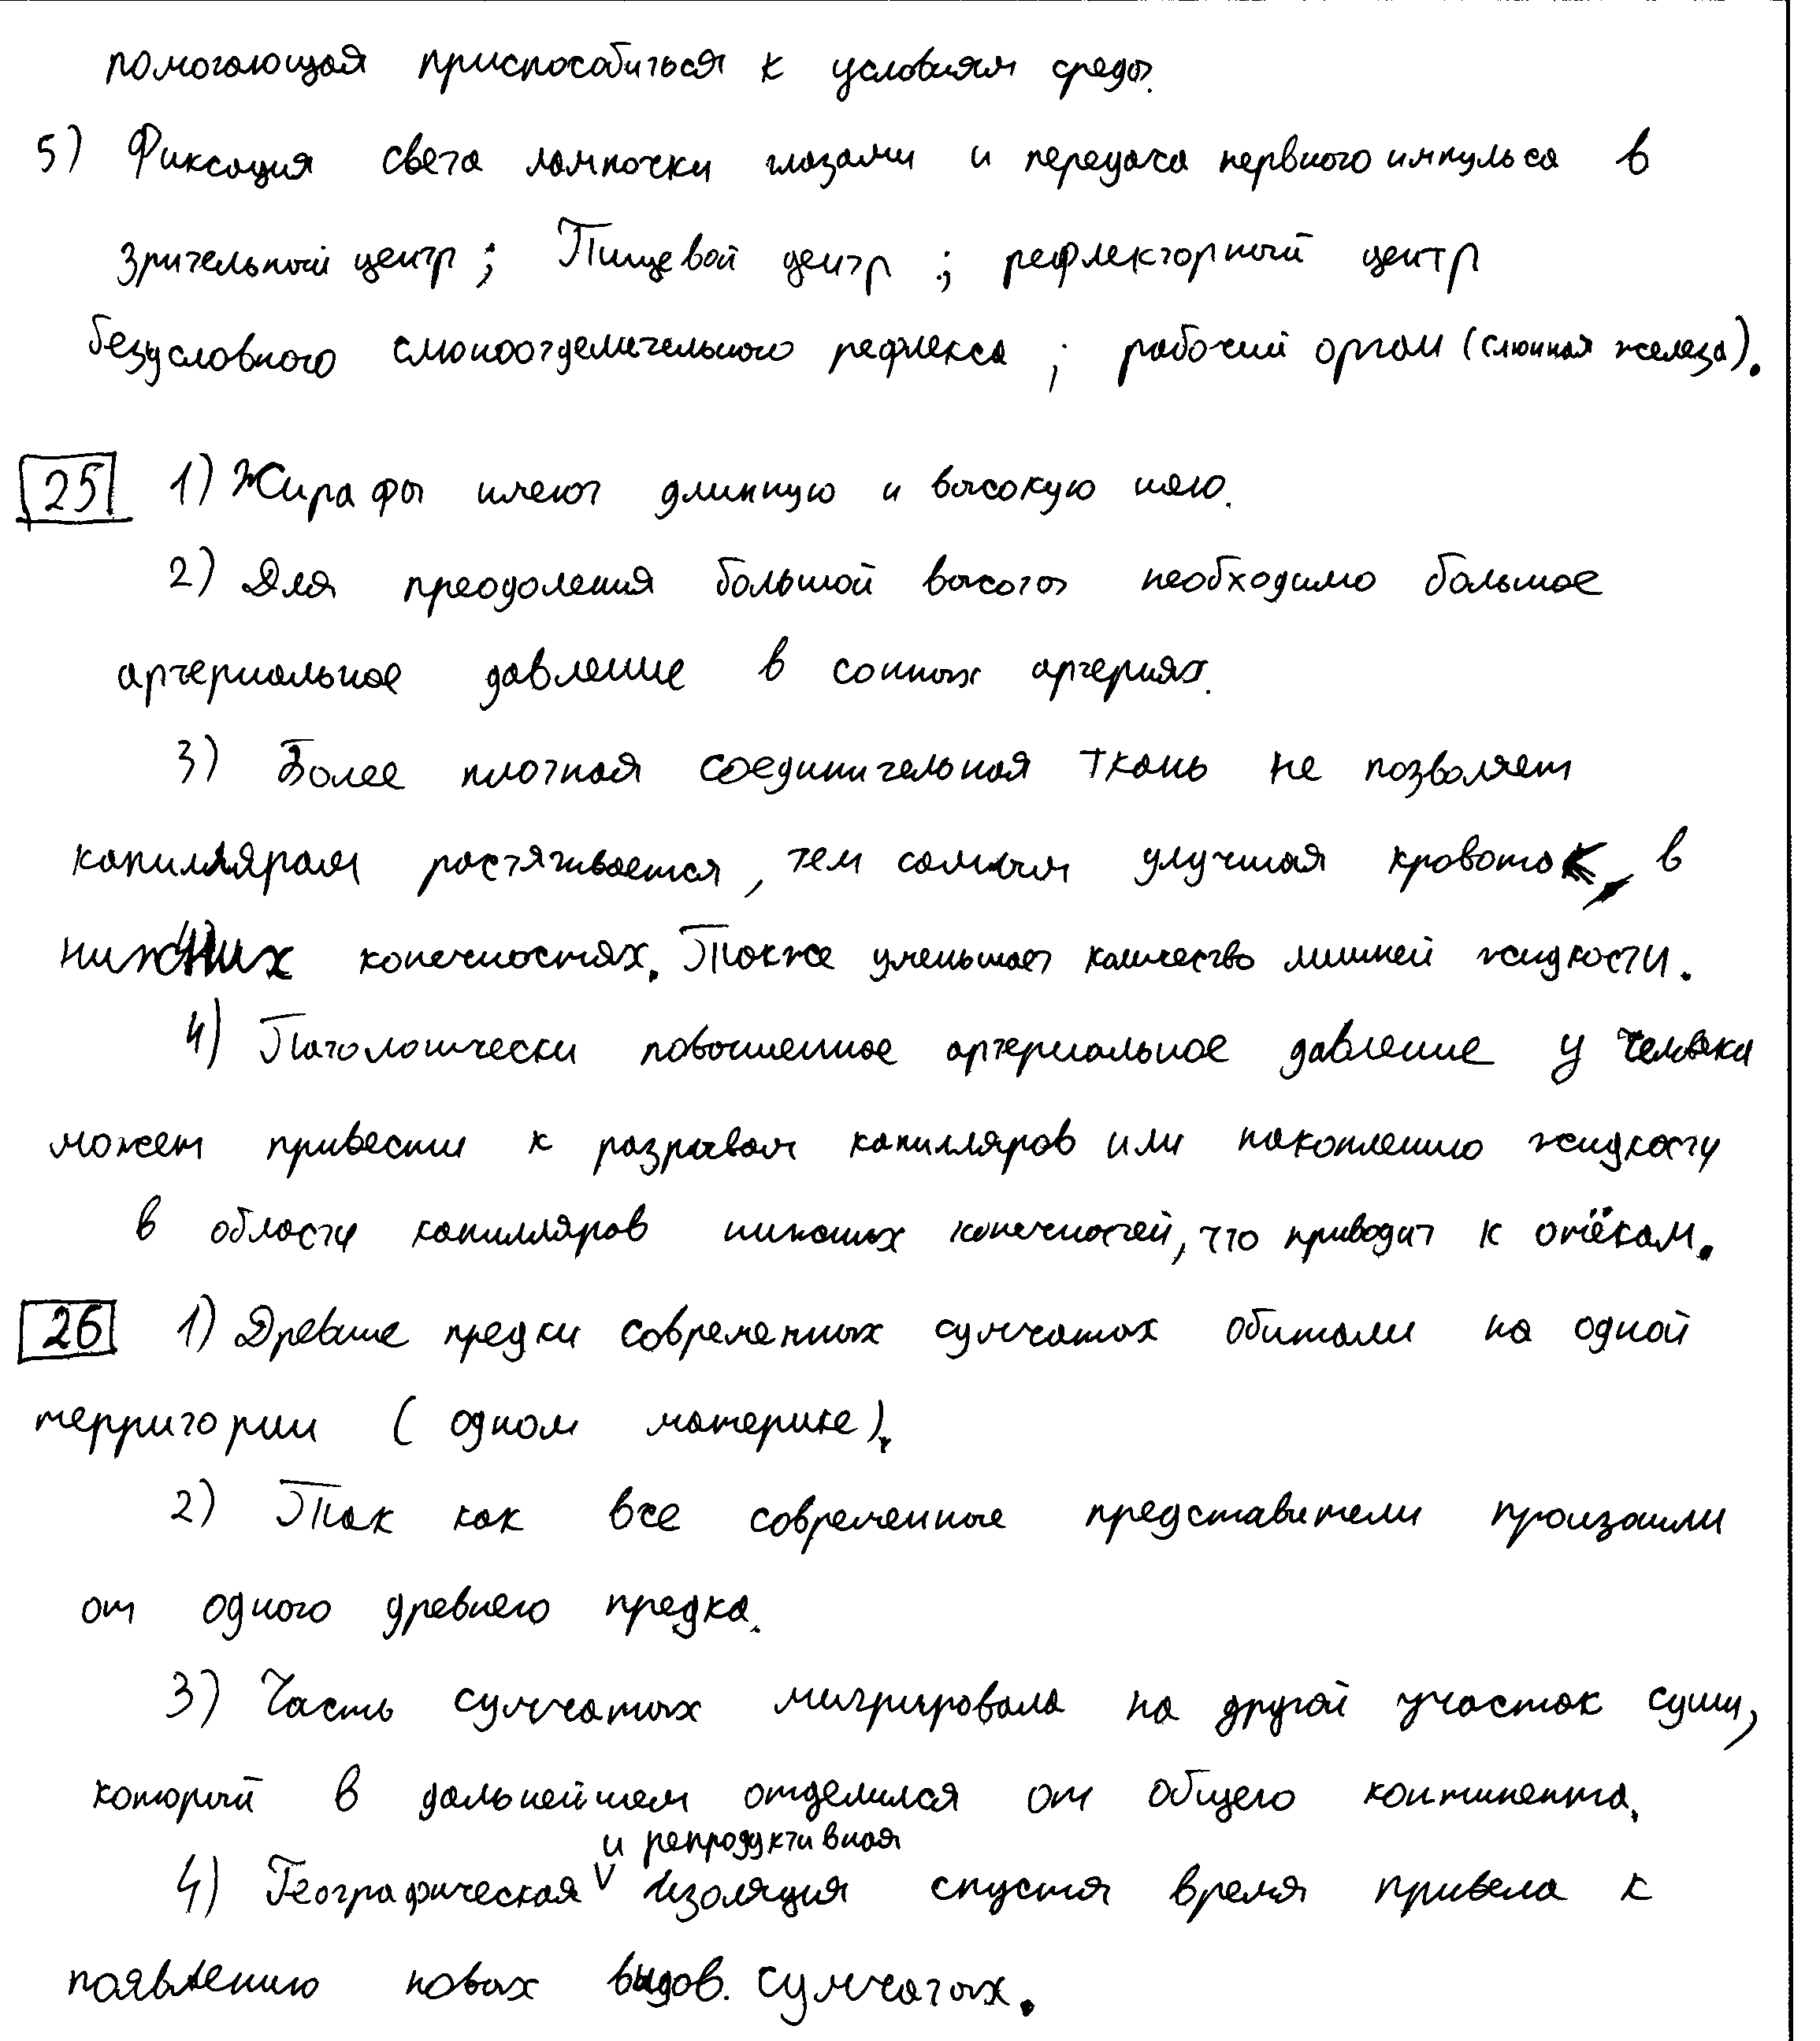 помогающая приспособиться к условиям среды.
5) Фиксация света лампочки глазами и передача нервного импульса в
зрительный центр; Пищевой центр; рефлекторный центр
безусловного слюноотделительного рефлекса; рабочий орган (слюнная железа).
25 1) Жирафы имеют длинную и высокую шею.
2) Для преодоления большой высоты необходимо большое
артериальное давление в сонных артериях.
3) Более плотная соединительная ткань не позволяет
капиллярам растягивается, тем самым улучшая кровоток в
нижних конечностях. Также уменьшает количество лишней жидкости.
4) Патологически повышенное артериальное давление у человека
может привести к разрывам капилляров или накоплению жидкости
в области капилляров нижних конечностей, что приводит к отёкам.
26 1) Древние предки современных сумчатых обитали на одной
территории (одном материке).
2) Так как все современные представители произошли
от одного древнего предка.
3) Часть сумчатых мигрировала на другой участок суши,
который в дальнейшем отделился от общего континента.
и репродуктивная
4) Географическая V изоляция спустя время привела к
появлению новых видов. сумчатых.